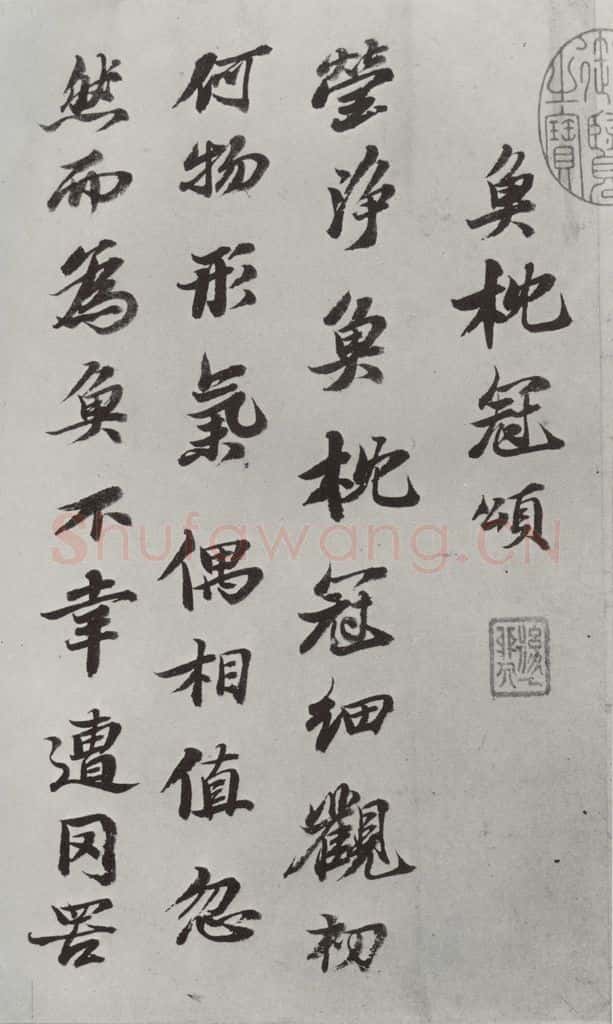 魚枕冠頌
瑩浄魚枕冠細觀初
何物形氣偶相值忽
然而為魚不幸遭网罟
Shufawang.CN